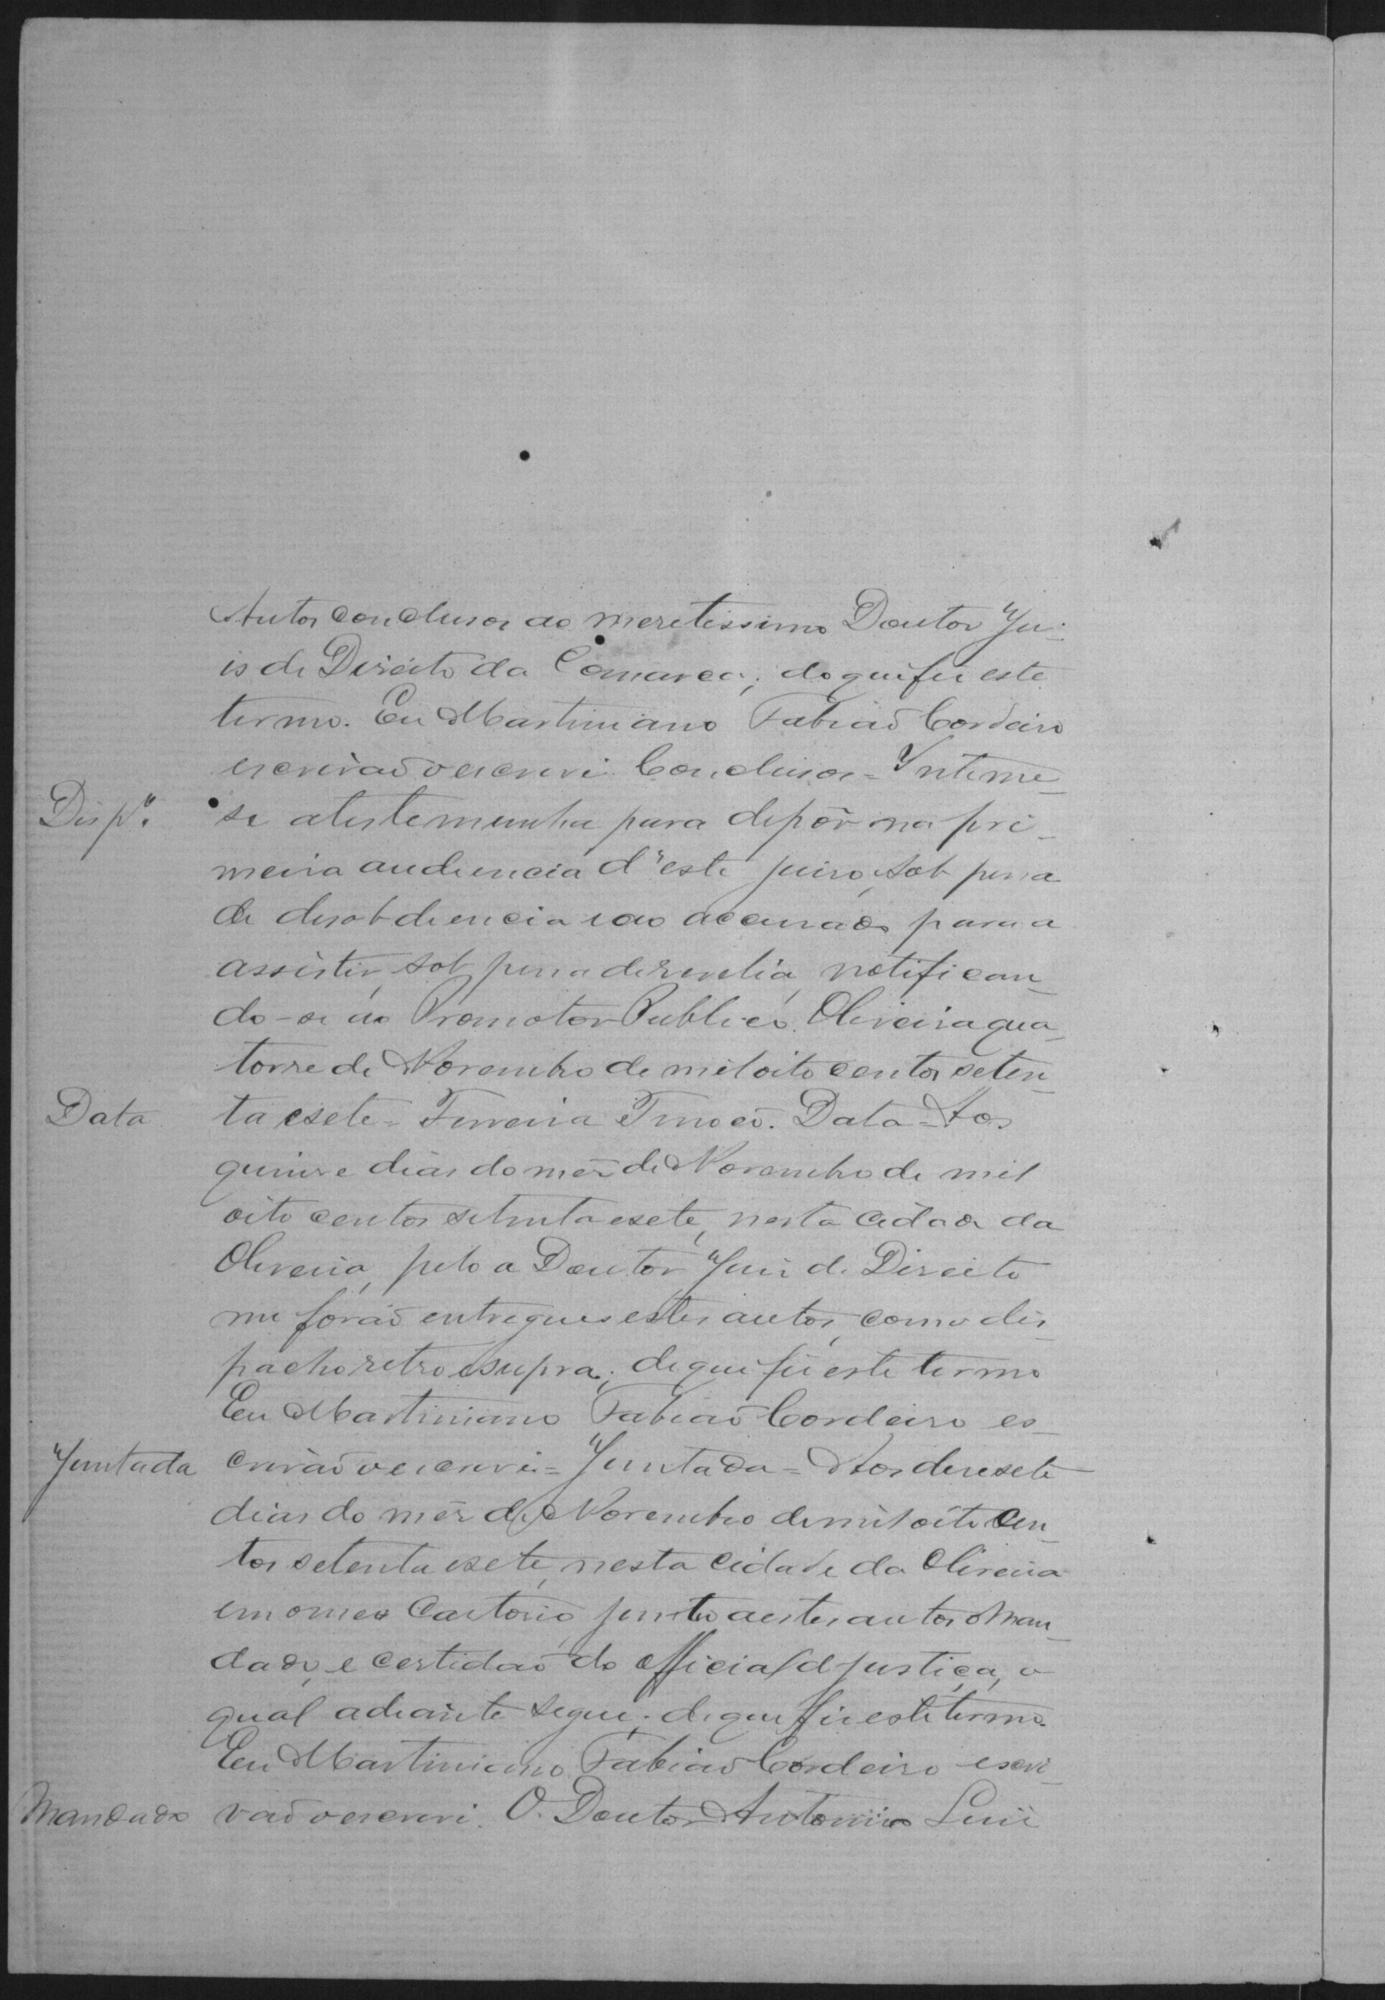 Autos conclusos ao meretissimo Doutor Ju-
is de Direito da Comarca; do que fis este
termo. Eu Martiniano Fabiaõ Cordeiro
escrivaõ o escrevi. Conclusos = Intime-
Desp.º se a testemunha para depôr na pri-
meira audiencia d'este juiso, sob pena
de desobdiencia e ao accusado para a
assistir, sob pena de revelia, notifican-
do-se ao Promotor Publico. Oliveira qua-
torze de Novembro de mil oito centos seten-
Data ta e sete = Ferreira Tinoco. Data = Aos
quinse dias do mês de Novembro de mil
oito centos setenta e sete, nesta cidade da
Oliveira, pelo a Doutor Juis de Direito
me foraõ entregues estes autos, com o des-
pacho retro e supra; de que fis este termo
Eu Martiniano Fabiaõ Cordeiro es-
Juntada crivaõ o escrevi = Juntada = Aos desesete
dias do mês de Novembro de mil oito cen-
tos setenta e sete, nesta cidade da Oliveira
em o meo Cartorio, junto a estes autos o Man-
dado, e certidaõ do official d justiça, o
qual adiante segue; de que fis este termo.
Eu Martiniano Fabiaõ Cordeiro escri-
Mandado vaõ o escrevi. O Doutor Antonio Luis